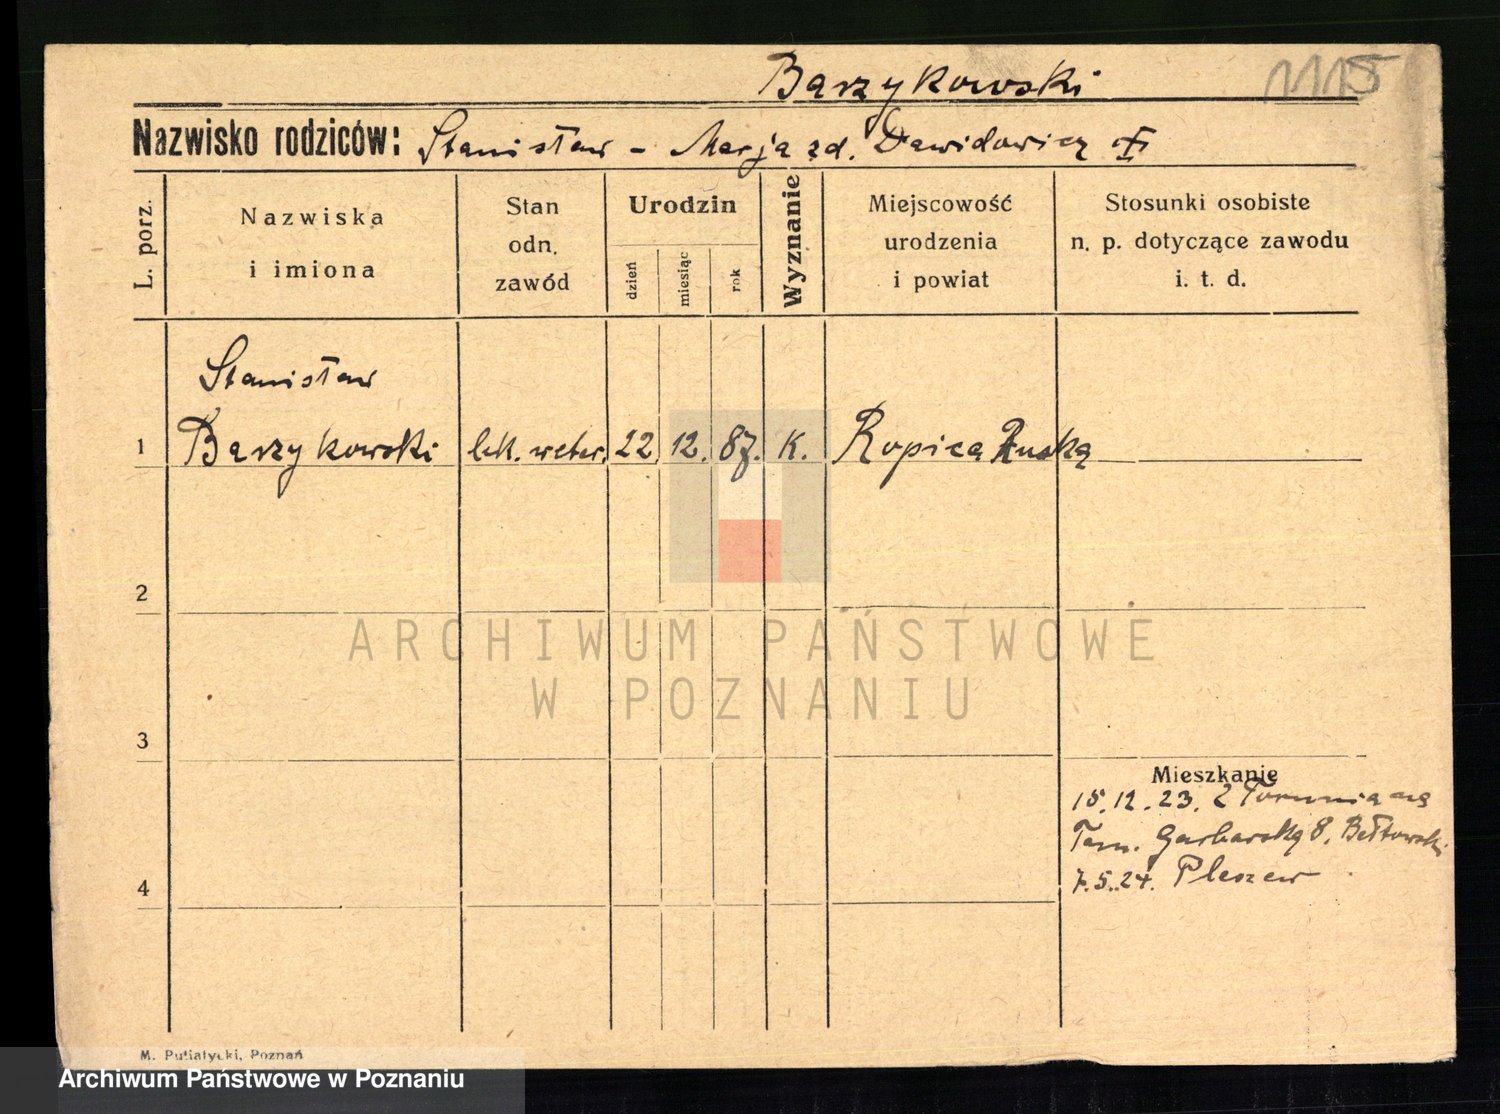 Barzykowski
1115
Nazwisko rodziców: Stanisław - Marja zd. Dawidowicz
L. porz.
Nazwiska
i imiona
Stan
odn.
zawód
Urodzin
dzień
miesiąc
rok
Wyznanie
Miejscowość
urodzenia
i powiat
Stosunki osobiste
n. p. dotyczące zawodu
i. t. d.
Stanisław
1 Barzykowski lek. weter. 22 12. 87. K. Ropica Ruska
2
ARCHIWUM PAŃSTWOWE
W POZNANIU
3
Mieszkanie
15.12.23. z Torunia na
Tam. Garbarska 8. Bełtowski
4
7.5.24. Pleszew
M. Putiatycki, Poznań
Archiwum Państwowe w Poznaniu